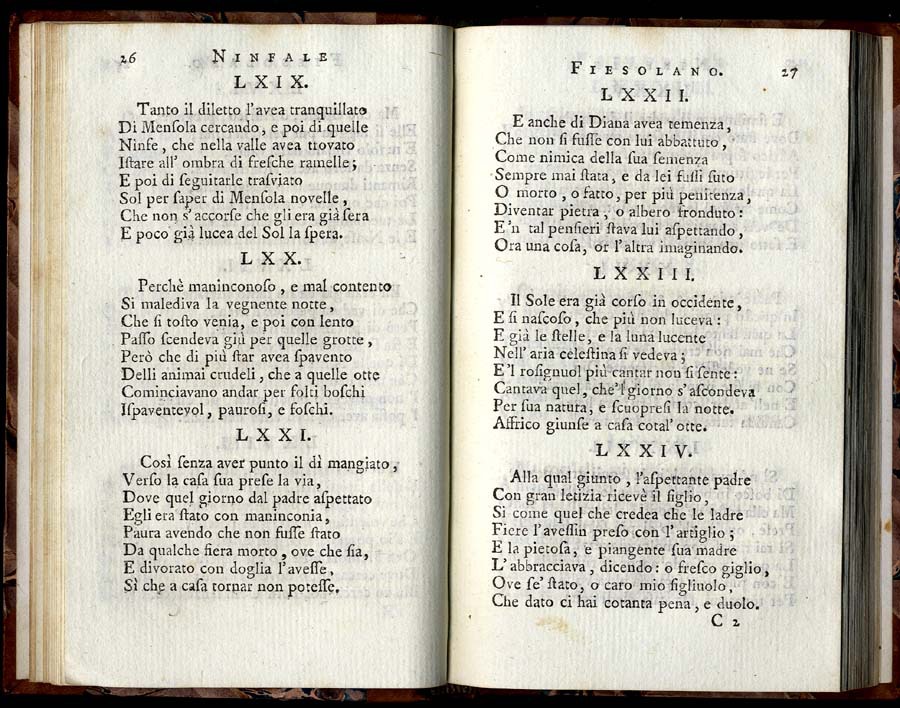 26 NINFALE
LXIX.
Tanto il diletto l'avea tranquillato
Di Menſola cercando, e poi di quelle
Ninfe, che nella valle avea trovato
Iſtare all' ombra di freſche ramelle;
E poi di ſeguitarle traſviato
Sol per ſaper di Menſola novelle,
Che non s' accorſe che gli era già ſera
E poco già lucea del Sol la ſpera.
LXX.
Perchè maninconoſo, e mal contento
Si malediva la vegnente notte,
Che sì toſto venia, e poi con lento
Paſſo ſcendeva giù per quelle grotte,
Però che di più ſtar avea ſpavento
Delli animai crudeli, che a quelle otte
Cominciavano andar per folti boſchi
Iſpaventevol, pauroſi, e foſchi.
LXXI.
Così ſenza aver punto il dì mangiato,
Verſo la caſa ſua preſe la via,
Dove quel giorno dal padre aſpettato
Egli era ſtato con maninconia,
Paura avendo che non fuſſe ſtato
Da qualche fiera morto, ove che ſia,
E divorato con doglia l'aveſſe,
Sì che a caſa tornar non poteſſe.
FIESOLANO. 27
LXXII.
E anche di Diana avea temenza,
Che non ſi fuſſe con lui abbattuto,
Come nimica della ſua ſemenza
Sempre mai ſtata, e da lei fuſſi ſuto
O morto, o fatto, per più penitenza,
Diventar pietra, o albero fronduto:
E'n tal penſieri ſtava lui aſpettando,
Ora una coſa, or l'altra imaginando.
LXXIII.
Il Sole era già corſo in occidente,
E ſi naſcoſo, che più non luceva:
E già le ſtelle, e la luna lucente
Nell' aria celeſtina ſi vedeva;
E'l roſignuol più cantar non ſi ſente:
Cantava quel, che'l giorno s'aſcondeva
Per ſua natura, e ſcuopreſi la notte.
Affrico giunſe a caſa cotal' otte.
LXXIV.
Alla qual giunto, l'aſpettante padre
Con gran letizia ricevè il figlio,
Si come quel che credea che le ladre
Fiere l'aveſſin preſo con l'artiglio;
E la pietoſa, e piangente ſua madre
L'abbracciava, dicendo: o freſco giglio,
Ove ſe' ſtato, o caro mio figliuolo,
Che dato ci hai cotanta pena, e duolo.
C 2